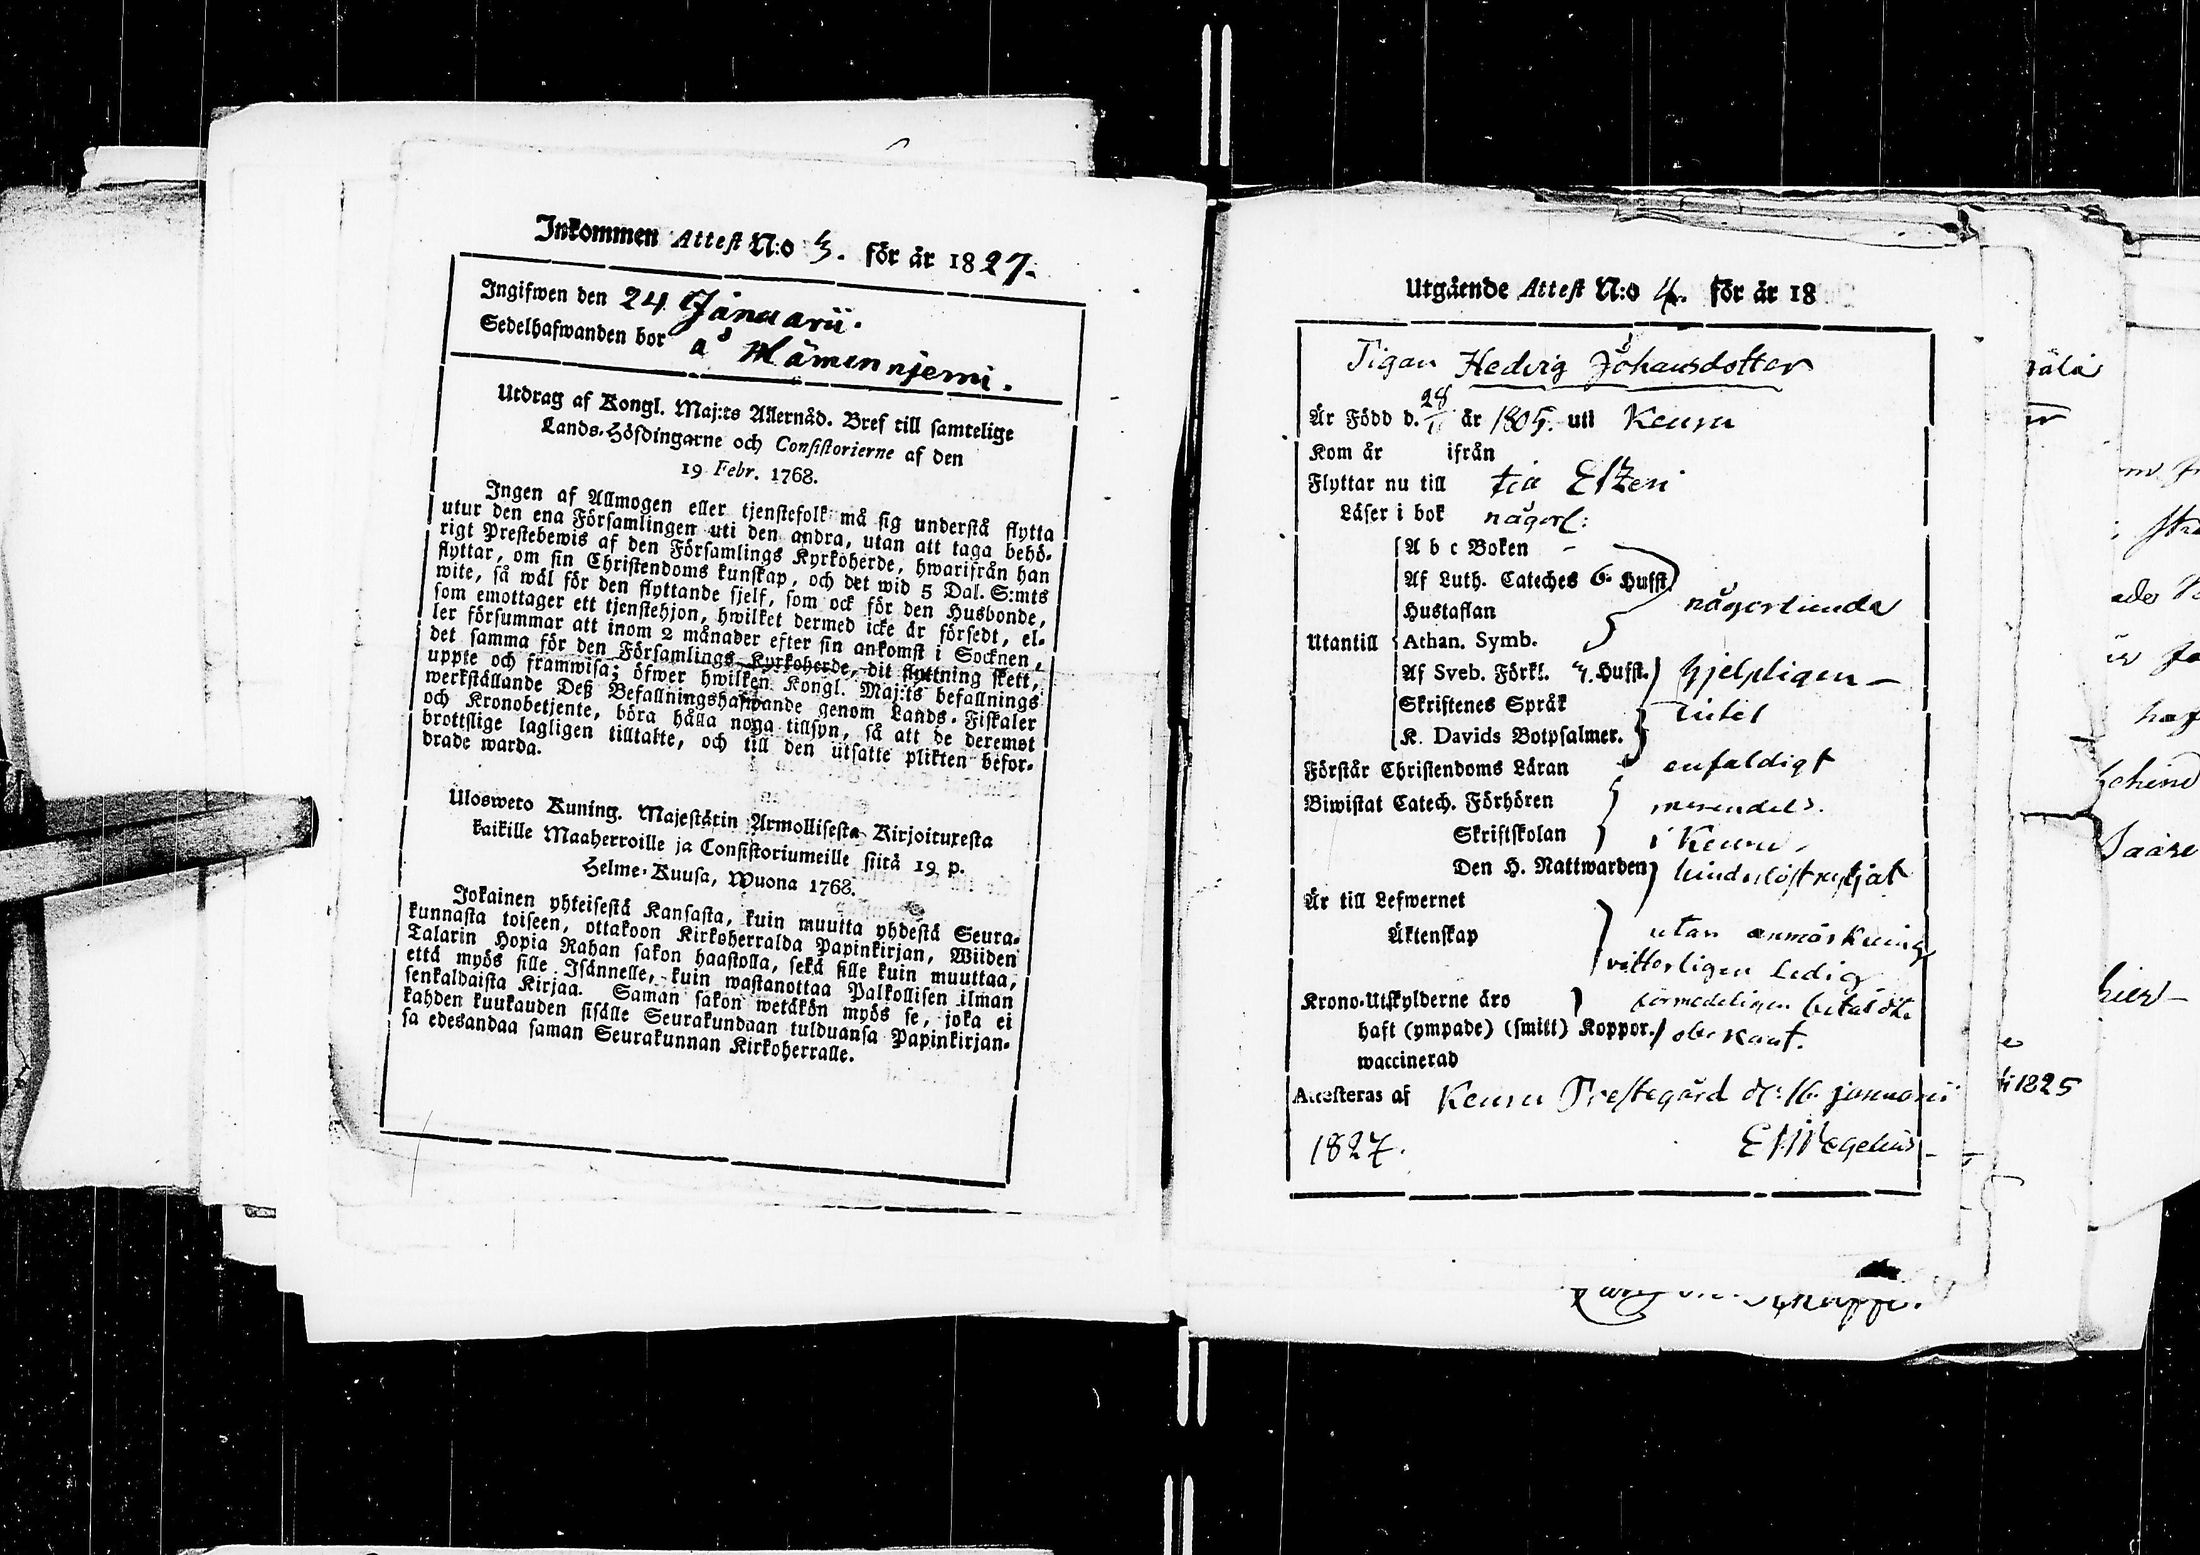 Inkommen Attest N:o 3. för år 1827.
Ingifwen den 24 Januarii.
Sedelhafwanden bor å Mämminjemi.
Utdrag af Kongl. Maj:ts Allernåd. Bref till samtelige
Lands-Höfdingarne och Consistorierne af den
19 Febr. 1768.
Ingen af Allmogen eller tjenstefolk må sig understå flytta
utur den ena Församlingen uti den andra, utan att taga behö-
rigt Prestebewis af den Församlings Kyrkoherde, hwarifrån han
flyttar, om sin Christendoms kunskap, och det wid 5 Dal. S:mts
wite, så wäl för den flyttande sjelf, som ock för den Husbonde,
som emottager ett tjenstehjon, hwilket dermed icke är försedt, el-
ler försummar att inom 2 månader efter sin ankomst i Socknen,
det samma för den Församlings Kyrkoherde, dit flyttning skett,
uppte och framwisa; öfwer hwilken Kongl. Maj:ts befallnings
werkställande Deß Befallningshafwande genom Lands-Fiskaler
och Kronobetjente, böra hålla noga tillsyn, så att de deremot
brottslige lagligen tilltalte, och till den utsatte plikten befor-
drade warda.
Ulosweto Kuning. Majestätin Armollisesta Kirjoituxesta
kaikille Maaherroille ja Consistoriumeille siitä 19 p.
Helme-Kuusa, Wuona 1768.
Jokainen yhteisestä Kansasta, kuin muutta yhdestä Seura-
kunnasta toiseen, ottakoon Kirkoherralda Papinkirjan, Wiiden
Talarin Hopia Rahan sakon haastolla, sekä sille kuin muuttaa,
että myös sille Isännelle, kuin wastanottaa Palkollisen ilman
senkaldaista Kirjaa. Saman sakon wetäkön myös se, joka ei
kahden kuukauden sisälle Seurakundaan tulduansa Papinkirjan-
sa edesandaa saman Seurakunnan Kirkoherralle.
Utgående Attest N:o 4. för år 18
Pigan Hedvig Johansdotter
Är Född d. 28 år 1805. uti Keuru
Kom år ifrån
Flyttar nu till
Läser i bok någorl:
A b c Boken -
Af Luth. Cateches 6. Hufst.
Hustaflan någorlunda
Utantill Athan. Symb.
Af Sveb. Förkl. 7. Hufst. hjelpligen
Skriftenes Språk intet
K. Davids Botpsalmer.
Förstår Christendoms Läran enfaldigt
Biwistat Catech. Förhören merendels.
Skriftskolan i Keuru.
Den H. Nattwarden
Är till Lefwernet
Äktenskap utan anmärkning
vitterligen Ledig
Krono-Utskylderne äro
haft (ympade) (smitt) Koppor. obekant.
waccinerad
Attesteras af Keuru Prestegård d: 16 januarii
1827.